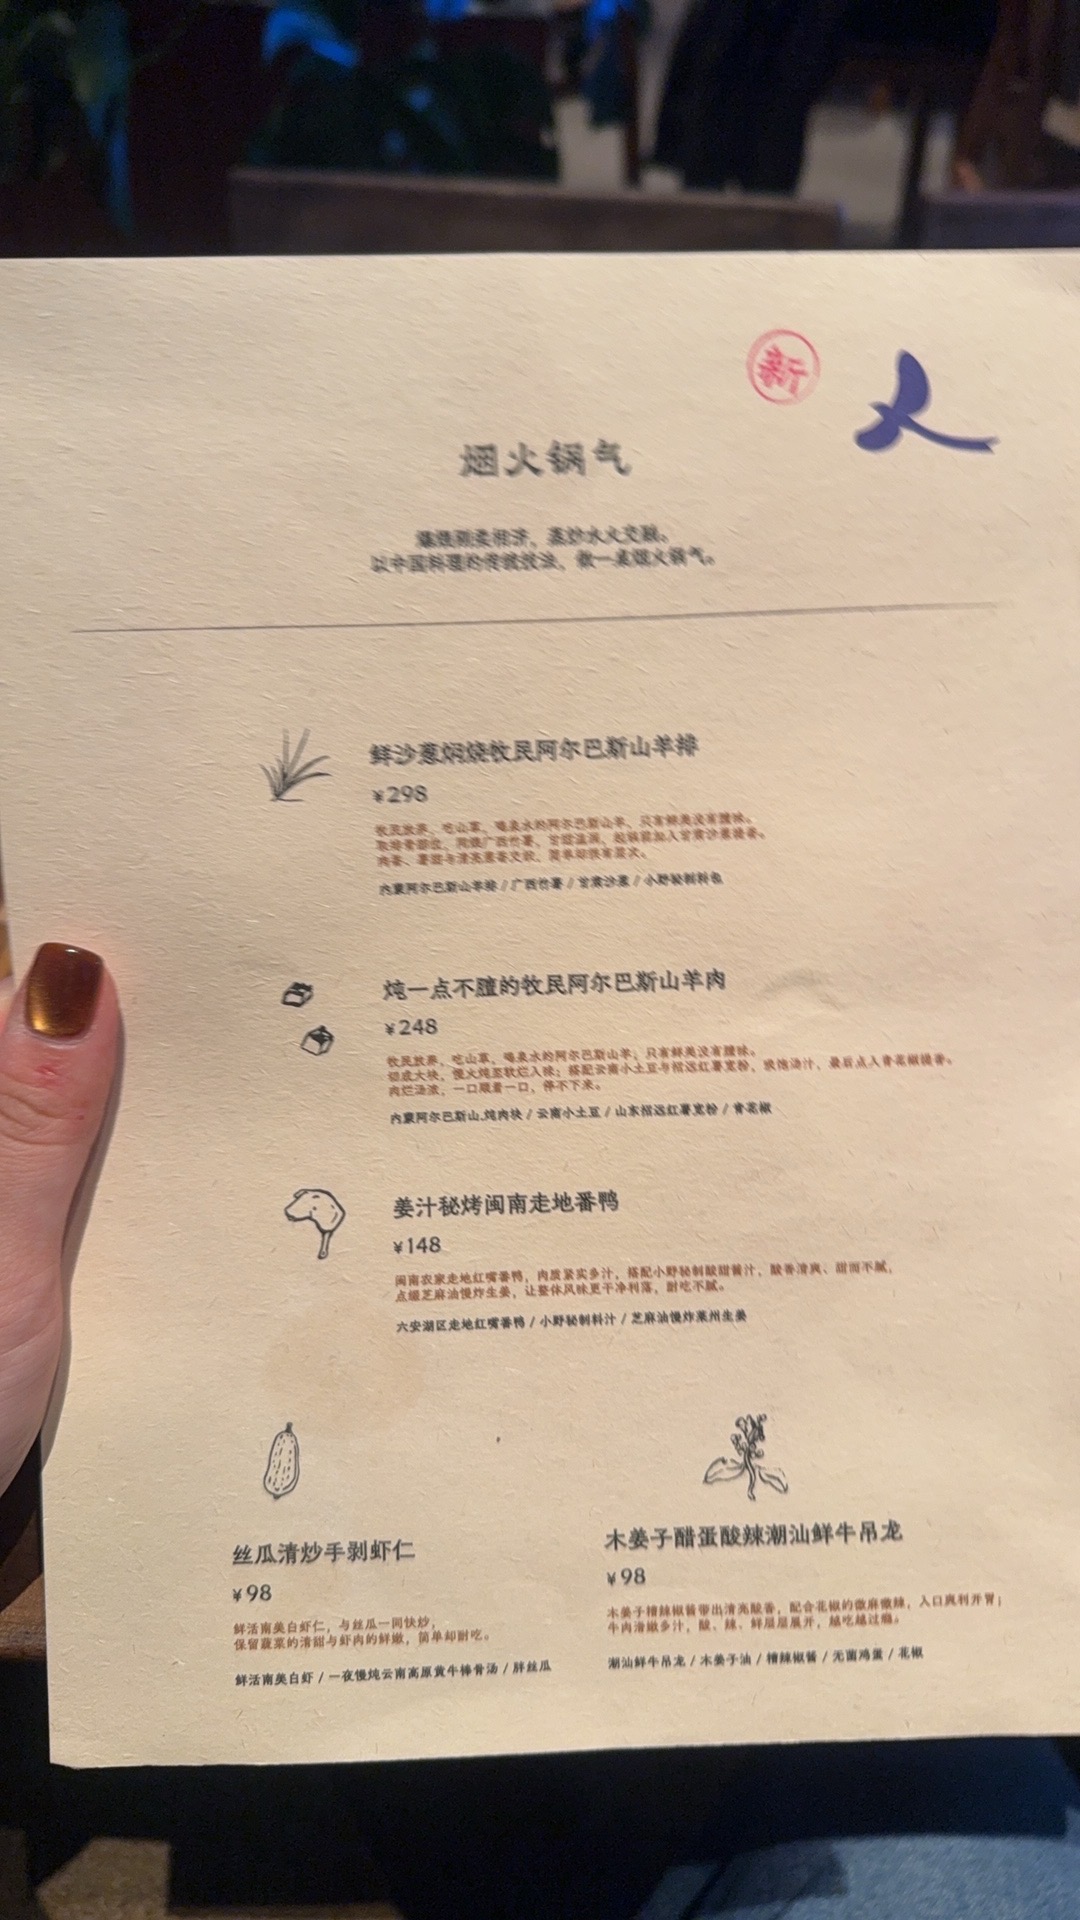 新
烟火锅气
爆馊刚柔相济，蒸炒水火交融。
以中国料理的传统技法，做一桌烟火锅气。
鲜沙葱焖烧牧民阿尔巴斯山羊排
¥298
牧民放养、吃山草、喝泉水的阿尔巴斯山羊，只有鲜美没有膻味。
取排骨部位，同烧广西竹薯，甘甜温润，起锅前加入甘肃沙葱提香。
肉香、薯甜与清亮葱香交织，简单却很有层次。
内蒙阿尔巴斯山羊排 / 广西竹薯 / 甘肃沙葱 / 小野秘制料包
炖一点不膻的牧民阿尔巴斯山羊肉
¥248
牧民放养、吃山草、喝泉水的阿尔巴斯山羊；只有鲜美没有膻味。
切成大块，慢火炖至软烂入味；搭配云南小土豆与招远红薯宽粉，吸饱汤汁，最后点入青花椒提香。
肉烂汤浓，一口顺着一口，停不下来。
内蒙阿尔巴斯山.炖肉块 / 云南小土豆 / 山东招远红薯宽粉 / 青花椒
姜汁秘烤闽南走地番鸭
¥148
闽南农家走地红嘴番鸭，肉质紧实多汁，搭配小野秘制酸甜酱汁，酸香清爽、甜而不腻，
点缀芝麻油慢炸生姜，让整体风味更干净利落，耐吃不腻。
六安湖区走地红嘴番鸭 / 小野秘制料汁 / 芝麻油慢炸莱州生姜
丝瓜清炒手剥虾仁
¥98
鲜活南美白虾仁，与丝瓜一同快炒，
保留蔬菜的清甜与虾肉的鲜嫩，简单却耐吃。
鲜活南美白虾 / 一夜慢炖云南高原黄牛棒骨汤 / 胖丝瓜
木姜子醋蛋酸辣潮汕鲜牛吊龙
¥98
木姜子糟辣椒酱带出清亮酸香，配合花椒的微麻微辣，入口爽利开胃；
牛肉滑嫩多汁，酸、辣、鲜层层展开，越吃越过瘾。
潮汕鲜牛吊龙 / 木姜子油 / 糟辣椒酱 / 无菌鸡蛋 / 花椒